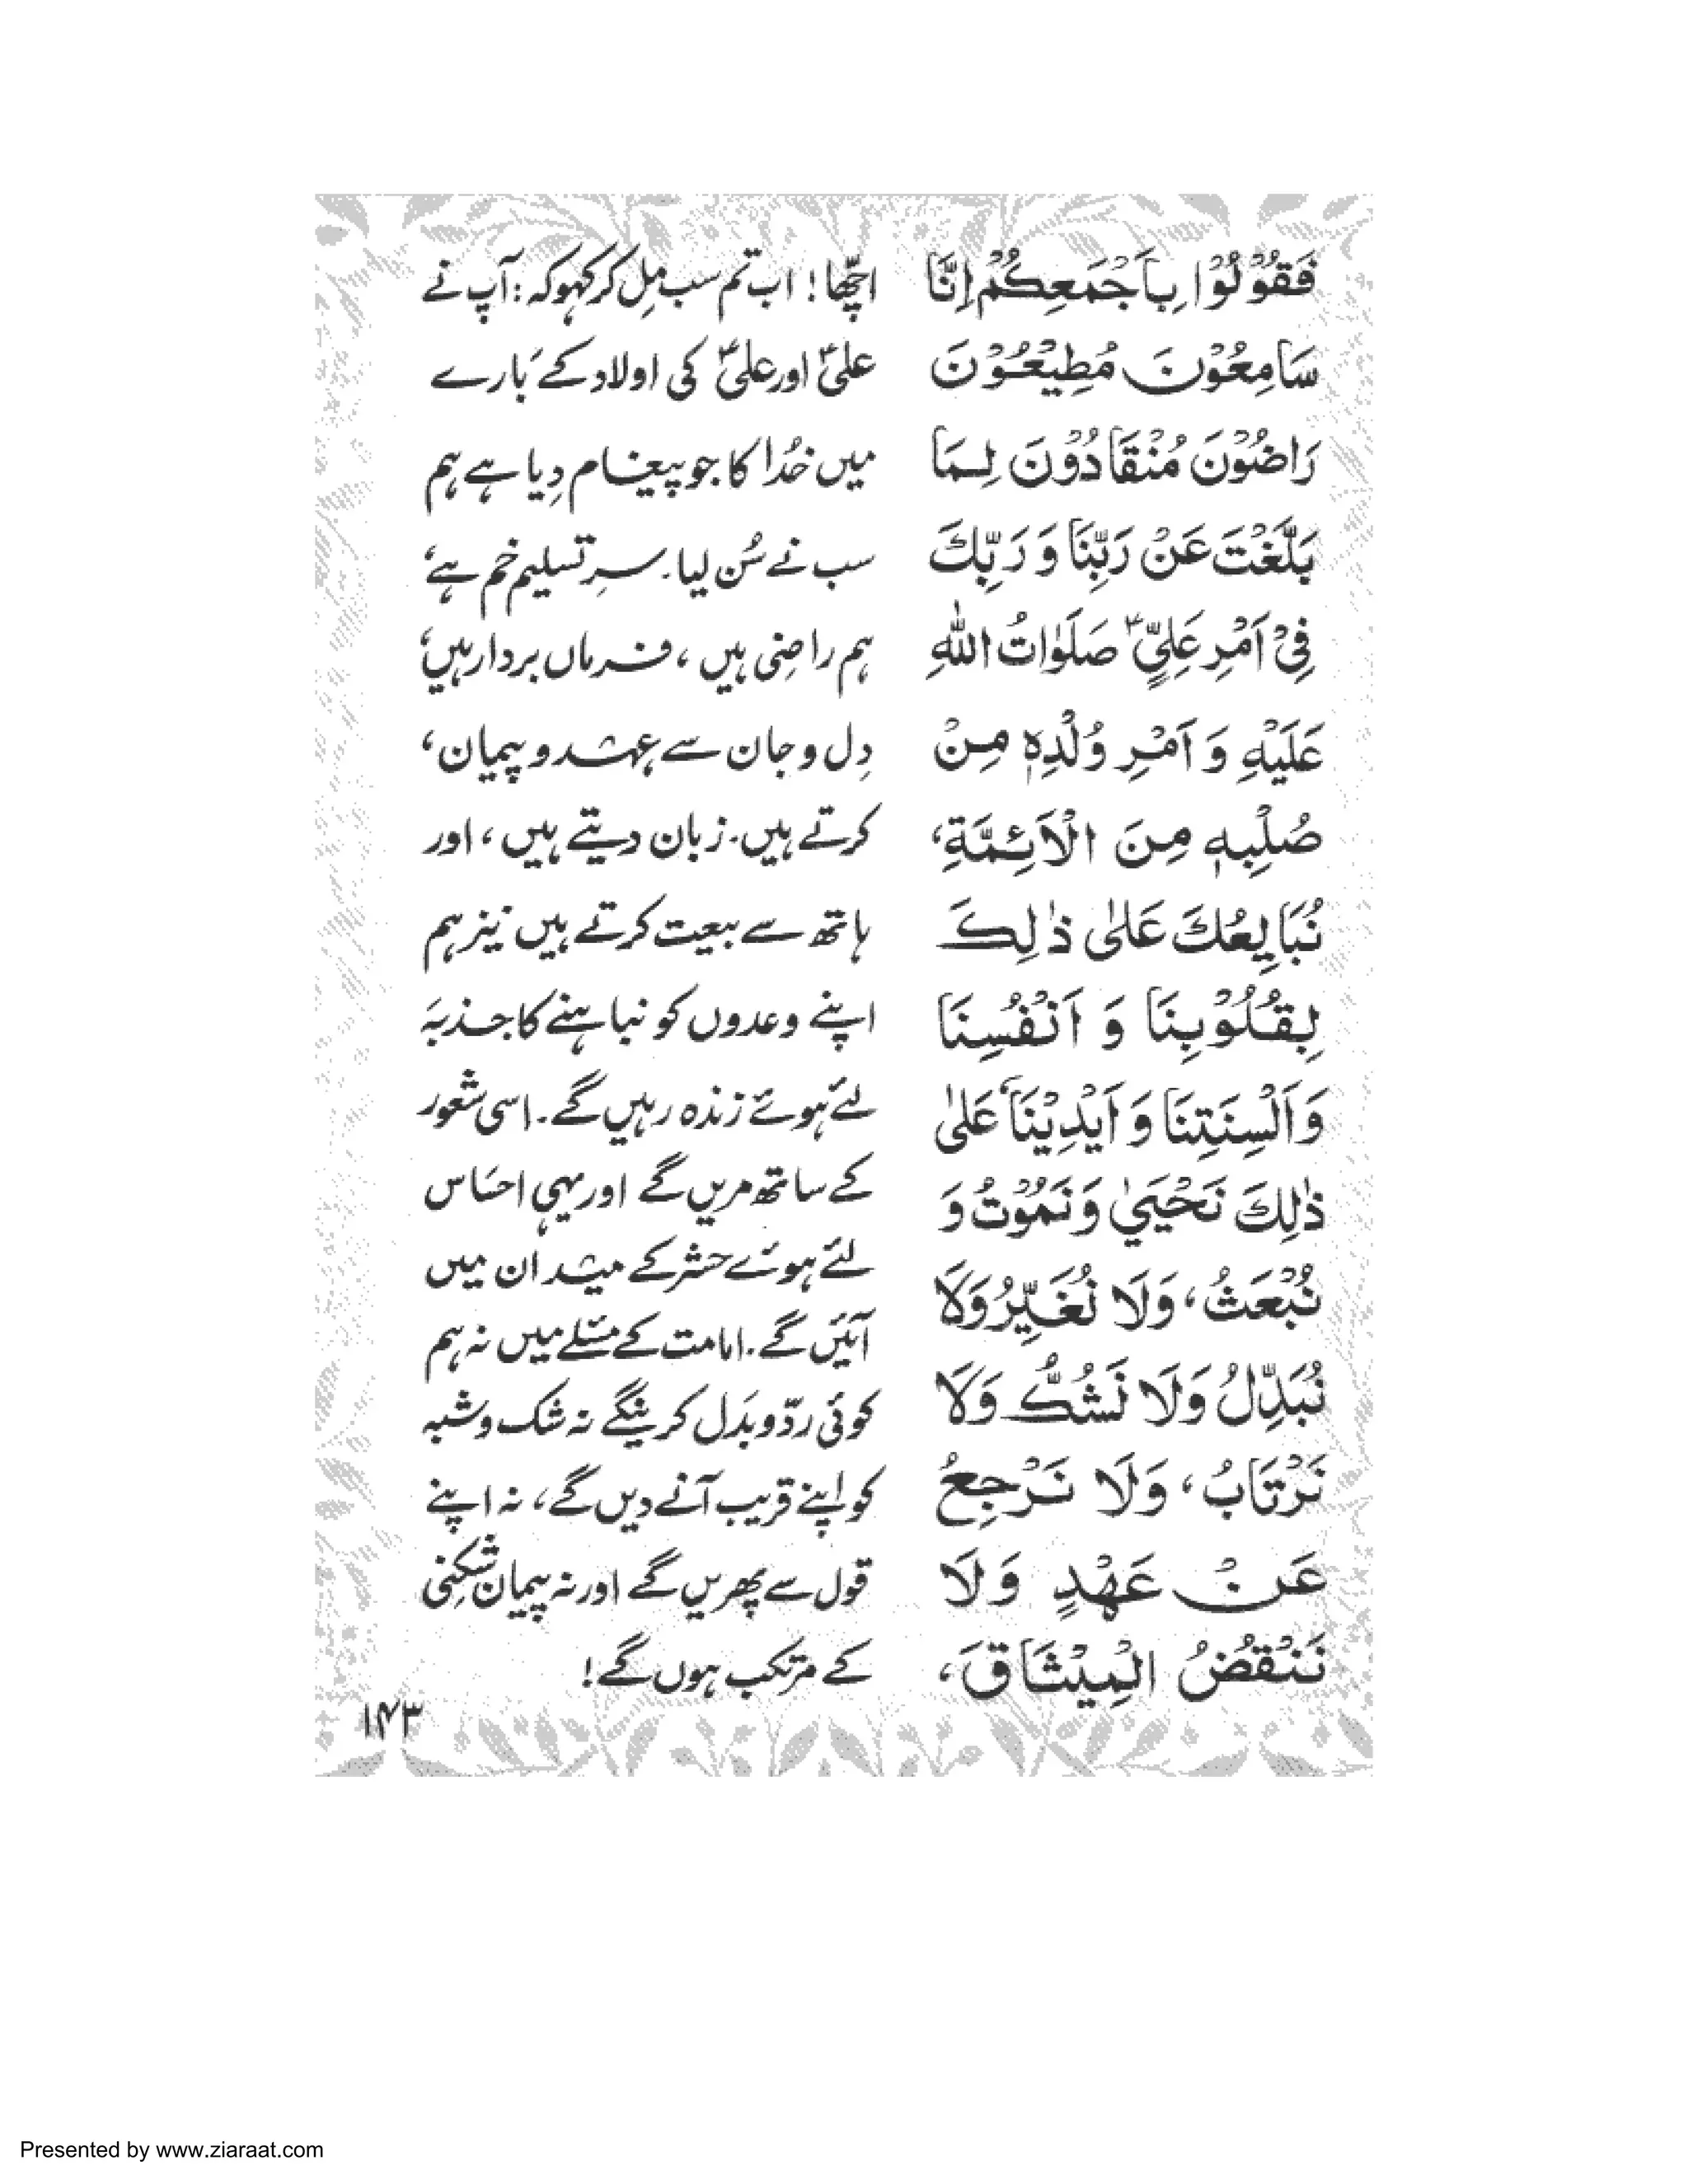 فَقُوْلُوْا بِاَجْمَعِكُمْ اِنَّا
سَامِعُوْنَ مُطِيْعُوْنَ
رَاضُوْنَ مُنْقَادُوْنَ لِمَا
بَلَّغْتَ عَنْ رَبِّنَا وَ رَبِّكَ
فِيْ اَمْرِ عَلِيٍّ صَلَوٰاتُ اللّٰهِ
عَلَيْهِ وَ اَمْرِ وُلْدِهٖ مِنْ
صُلْبِهٖ مِنَ الْاَئِمَّةِ،
نُبَايِعُكَ عَلىٰ ذٰلِكَ
بِقُلُوْبِنَا وَ اَنْفُسِنَا
وَ اَلْسِنَتِنَا وَ اَيْدِيْنَا، عَلىٰ
ذٰلِكَ نَحْيَيٰ وَ نَمُوْتُ وَ
نُبْعَثُ، وَلَا نُغَيِّرُ وَلَا
نُبَدِّلُ وَلَا نَشُكُّ وَلَا
نَرْتَابُ، وَلَا نَرْجِعُ
عَنْ عَهْدٍ وَلَا
نَنْقُضُ الْمِيْثَاقَ،
اچّھا! اب تم سب مِل کر کہو کہ: آپ نے
علیؑ اور علیؑ کی اولاد کے بارے
میں خُدا کا جو پیغام دِیا ہے ہم
سب نے سُن لیا۔ سرِ تسلیم خم ہے،
ہم راضِی ہیں، فرماں بردار ہیں،
دِل و جان سے عہد و پیمان،
کرتے ہیں۔ زبان دیتے ہیں، اور
ہاتھ سے بیعت کرتے ہیں نیز ہم
اپنے وعدوں کو نباہنے کا جذبَہ
لئے ہوئے زندہ رہیں گے۔ اسی شعُور
کے ساتھ مریں گے اور یہی احسَاس
لئے ہوئے حشر کے میدان میں
آئیں گے۔ امامت کے مسئلے میں نہ ہم
کوئی ردّ و بدَل کرینگے نہ شک و شبہ
کو اپنے قریب آنے دیں گے، نہ اپنے
قول سے پھریں گے اور نہ پیمان شکِنی
کے مرتکب ہوں گے!
۱۴۳
Presented by www.ziaraat.com